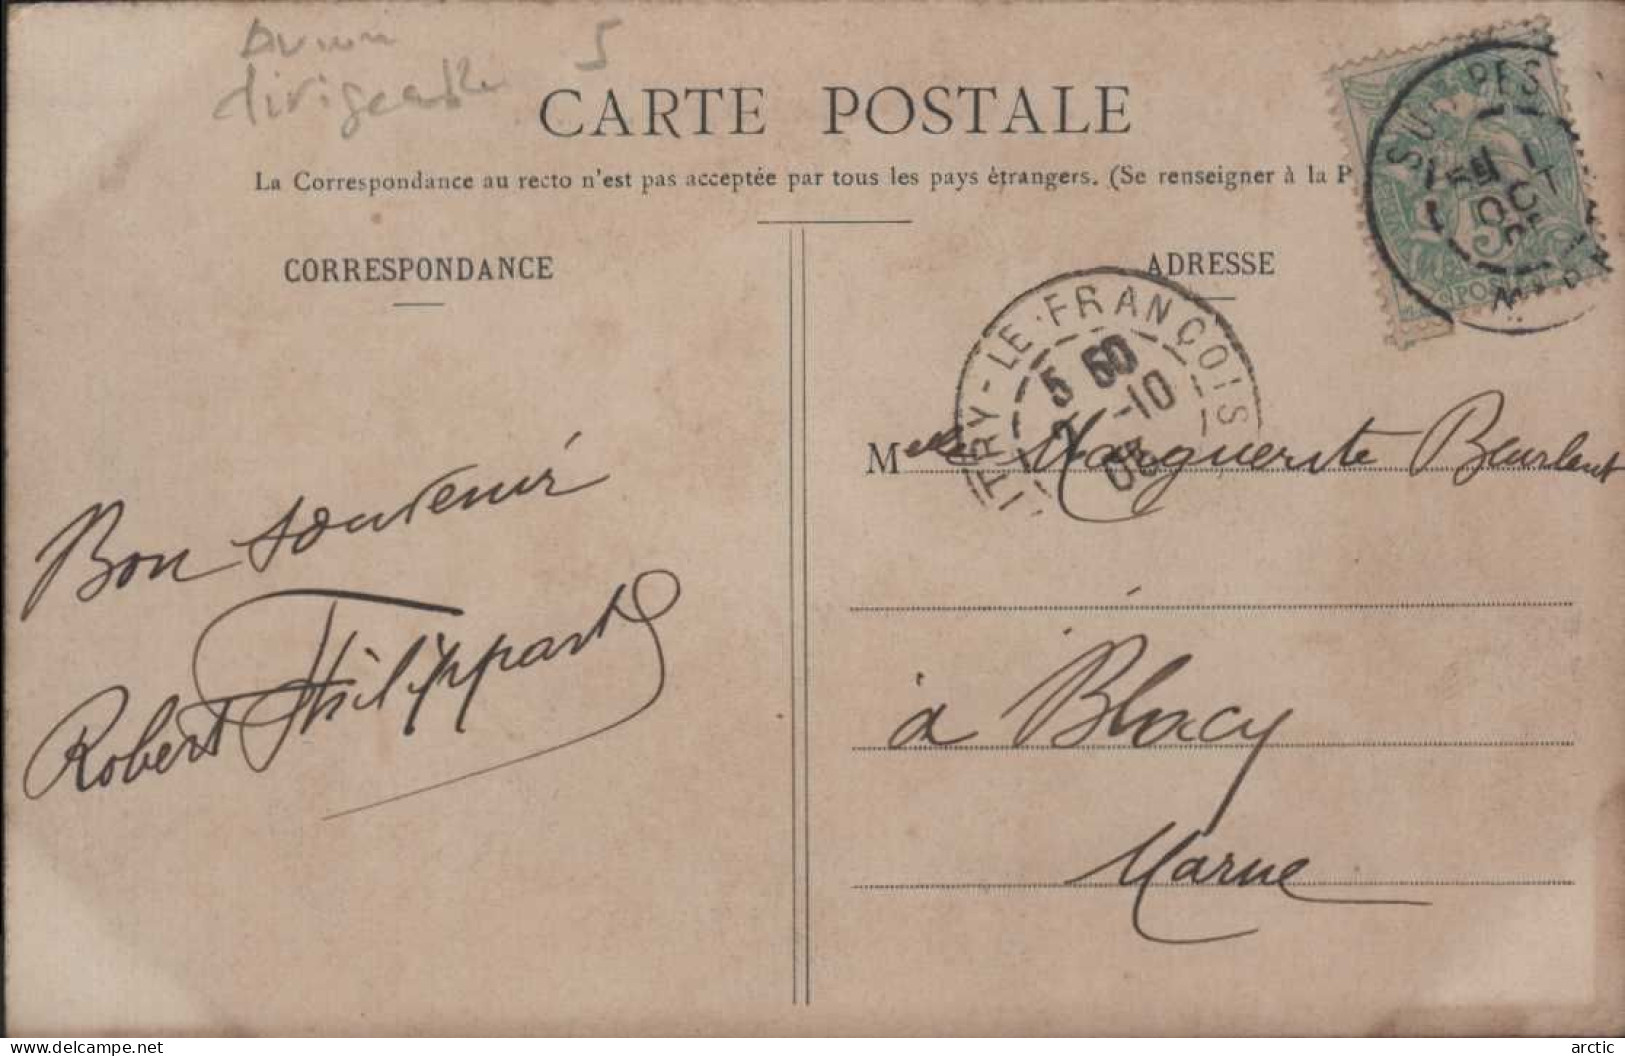 Avion
dirigeable 5
CARTE POSTALE
La Correspondance au recto n'est pas acceptée par tous les pays étrangers. (Se renseigner à la P
CORRESPONDANCE
ADRESSE
SUIPPES
MARNE
5
POSTES
VITRY-LE-FRANÇOIS
5 50
2-10
05
Bon souvenir
Robert Philippart
Melle Marguerite Beurlent
à Blacy
Marne
delcampe.net
arctic